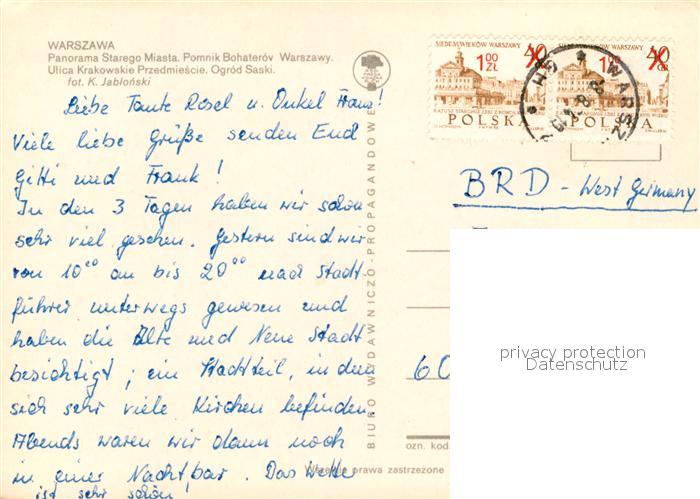 WARSZAWA
Panorama Starego Miasta. Pomnik Bohaterów Warszawy.
Ulica Krakowskie Przedmieście. Ogród Saski.
fot. K. Jabłoński
Liebe Tante Rosel u. Onkel Franz!
Viele liebe Grüße senden Euch
Gitti und Frank!
In den 3 Tagen haben wir schon
sehr viel gesehen. Gestern sind wir
von 10⁰⁰ an bis 20⁰⁰ nach Stadt
führer unterwegs gewesen und
haben die Alte und Neue Stadt
besichtigt; ein Stadtteil, in dem
sich sehr viele Kirchen befinden.
Abends waren wir dann noch
in einer Nachtbar. Das Wetter
ist sehr schön!
BIURO WYDAWNICZO-PROPAGANDOWE
SIEDEM WIEKÓW WARSZAWY 40
1⁰⁰ ZŁ
POLSKA
SIEDEM WIEKÓW WARSZAWY 40 GR
1⁰⁰
POLSKA
BRD - West Germany
60
privacy protection
Datenschutz
ozn. kod.
prawa zastrzeżone